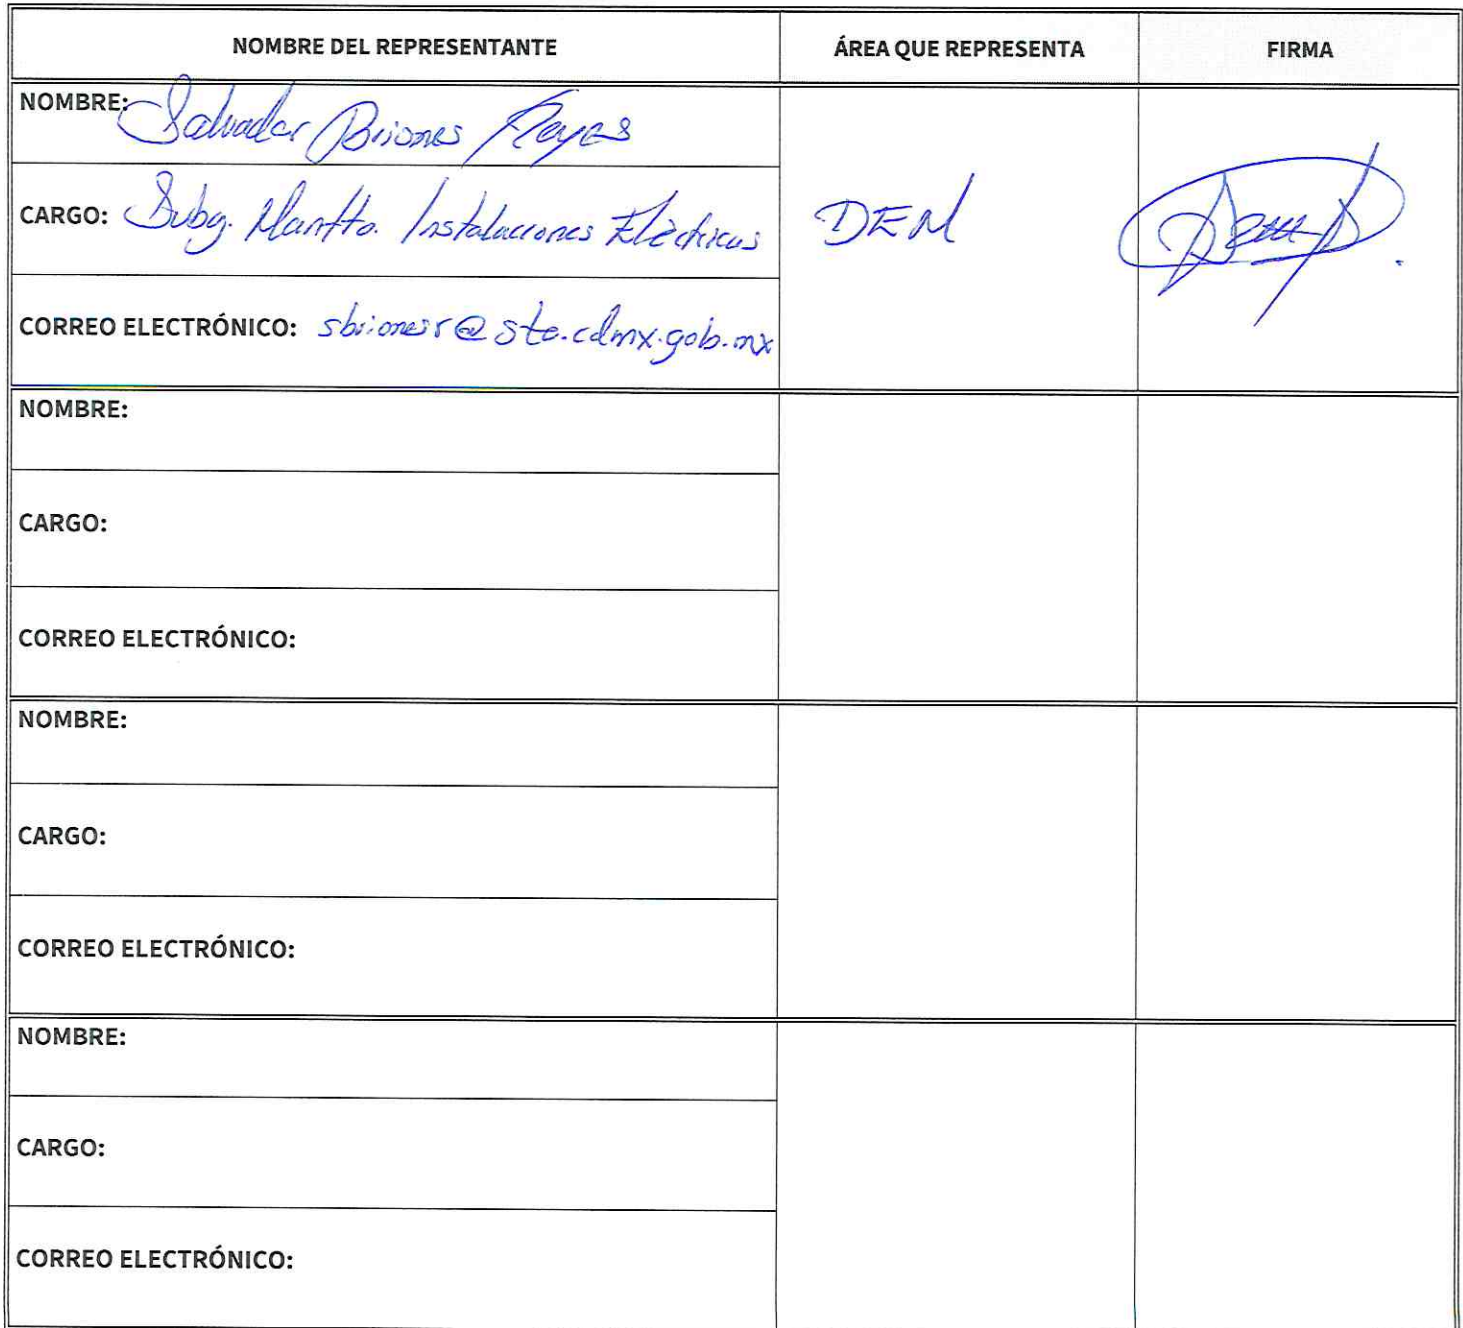 NOMBRE DEL REPRESENTANTE ÁREA QUE REPRESENTA FIRMA
NOMBRE: Salvador Briones Reyes
CARGO: Subg. Mantto. Instalaciones Eléctricas DEM
CORREO ELECTRÓNICO: sbrionesr@ste.cdmx.gob.mx
NOMBRE:
CARGO:
CORREO ELECTRÓNICO:
NOMBRE:
CARGO:
CORREO ELECTRÓNICO:
NOMBRE:
CARGO:
CORREO ELECTRÓNICO: